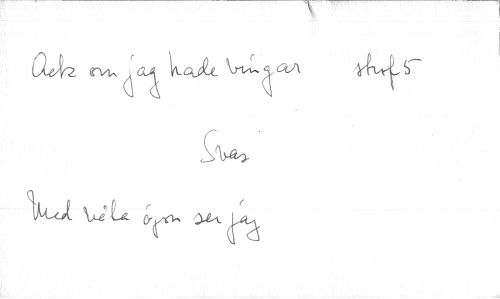 Ack om jag hade vingar strof 5
Svar
Med våta ögon ser jag